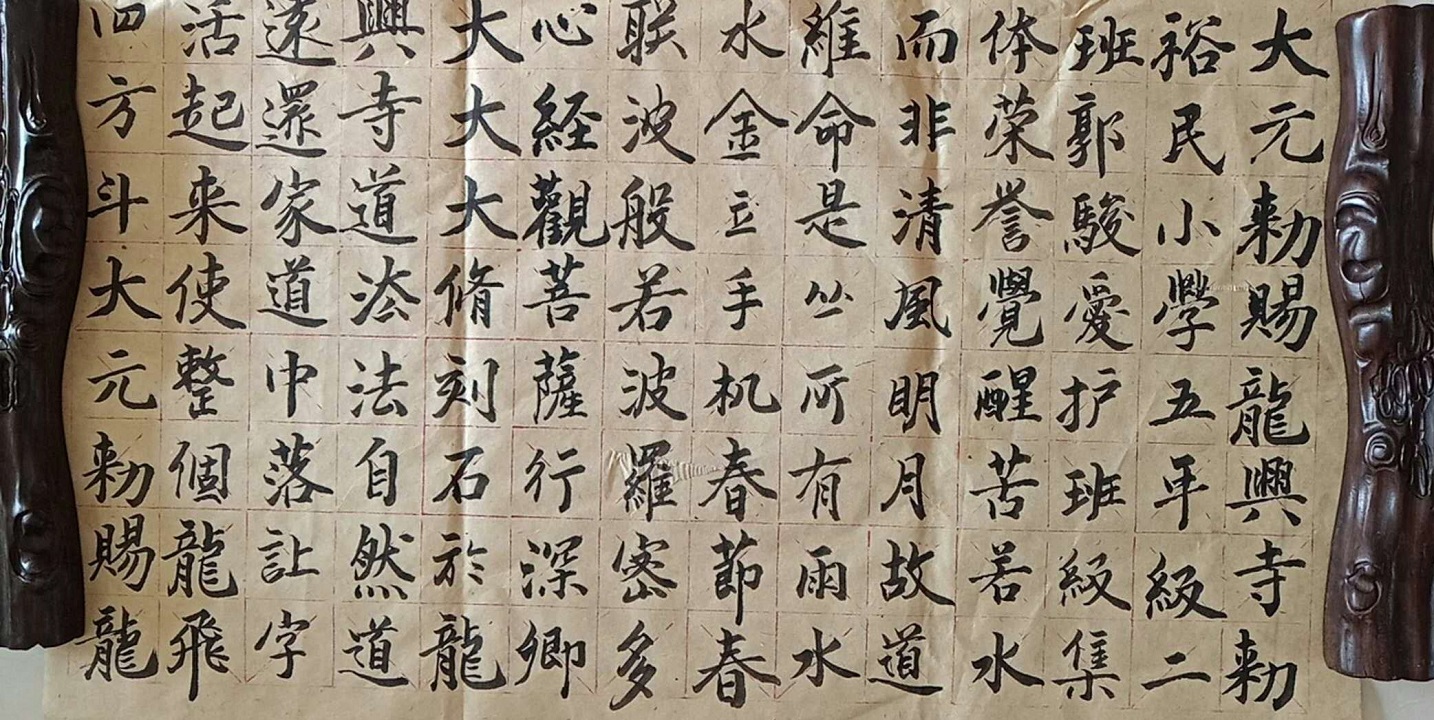 大元勑賜龍興寺勑
裕民小學五年級二
班郭駿愛护班級集
体荣誉覺醒苦若水
而非清風明月故道
維命是从所有雨水
水金立手机春節春
联波般若波羅密多
心経觀菩薩行深卿
大大大脩刻石於龍
興寺道法自然道
遠還家道中落訨字
活起来使整個龍飛
四方斗大元勑賜龍